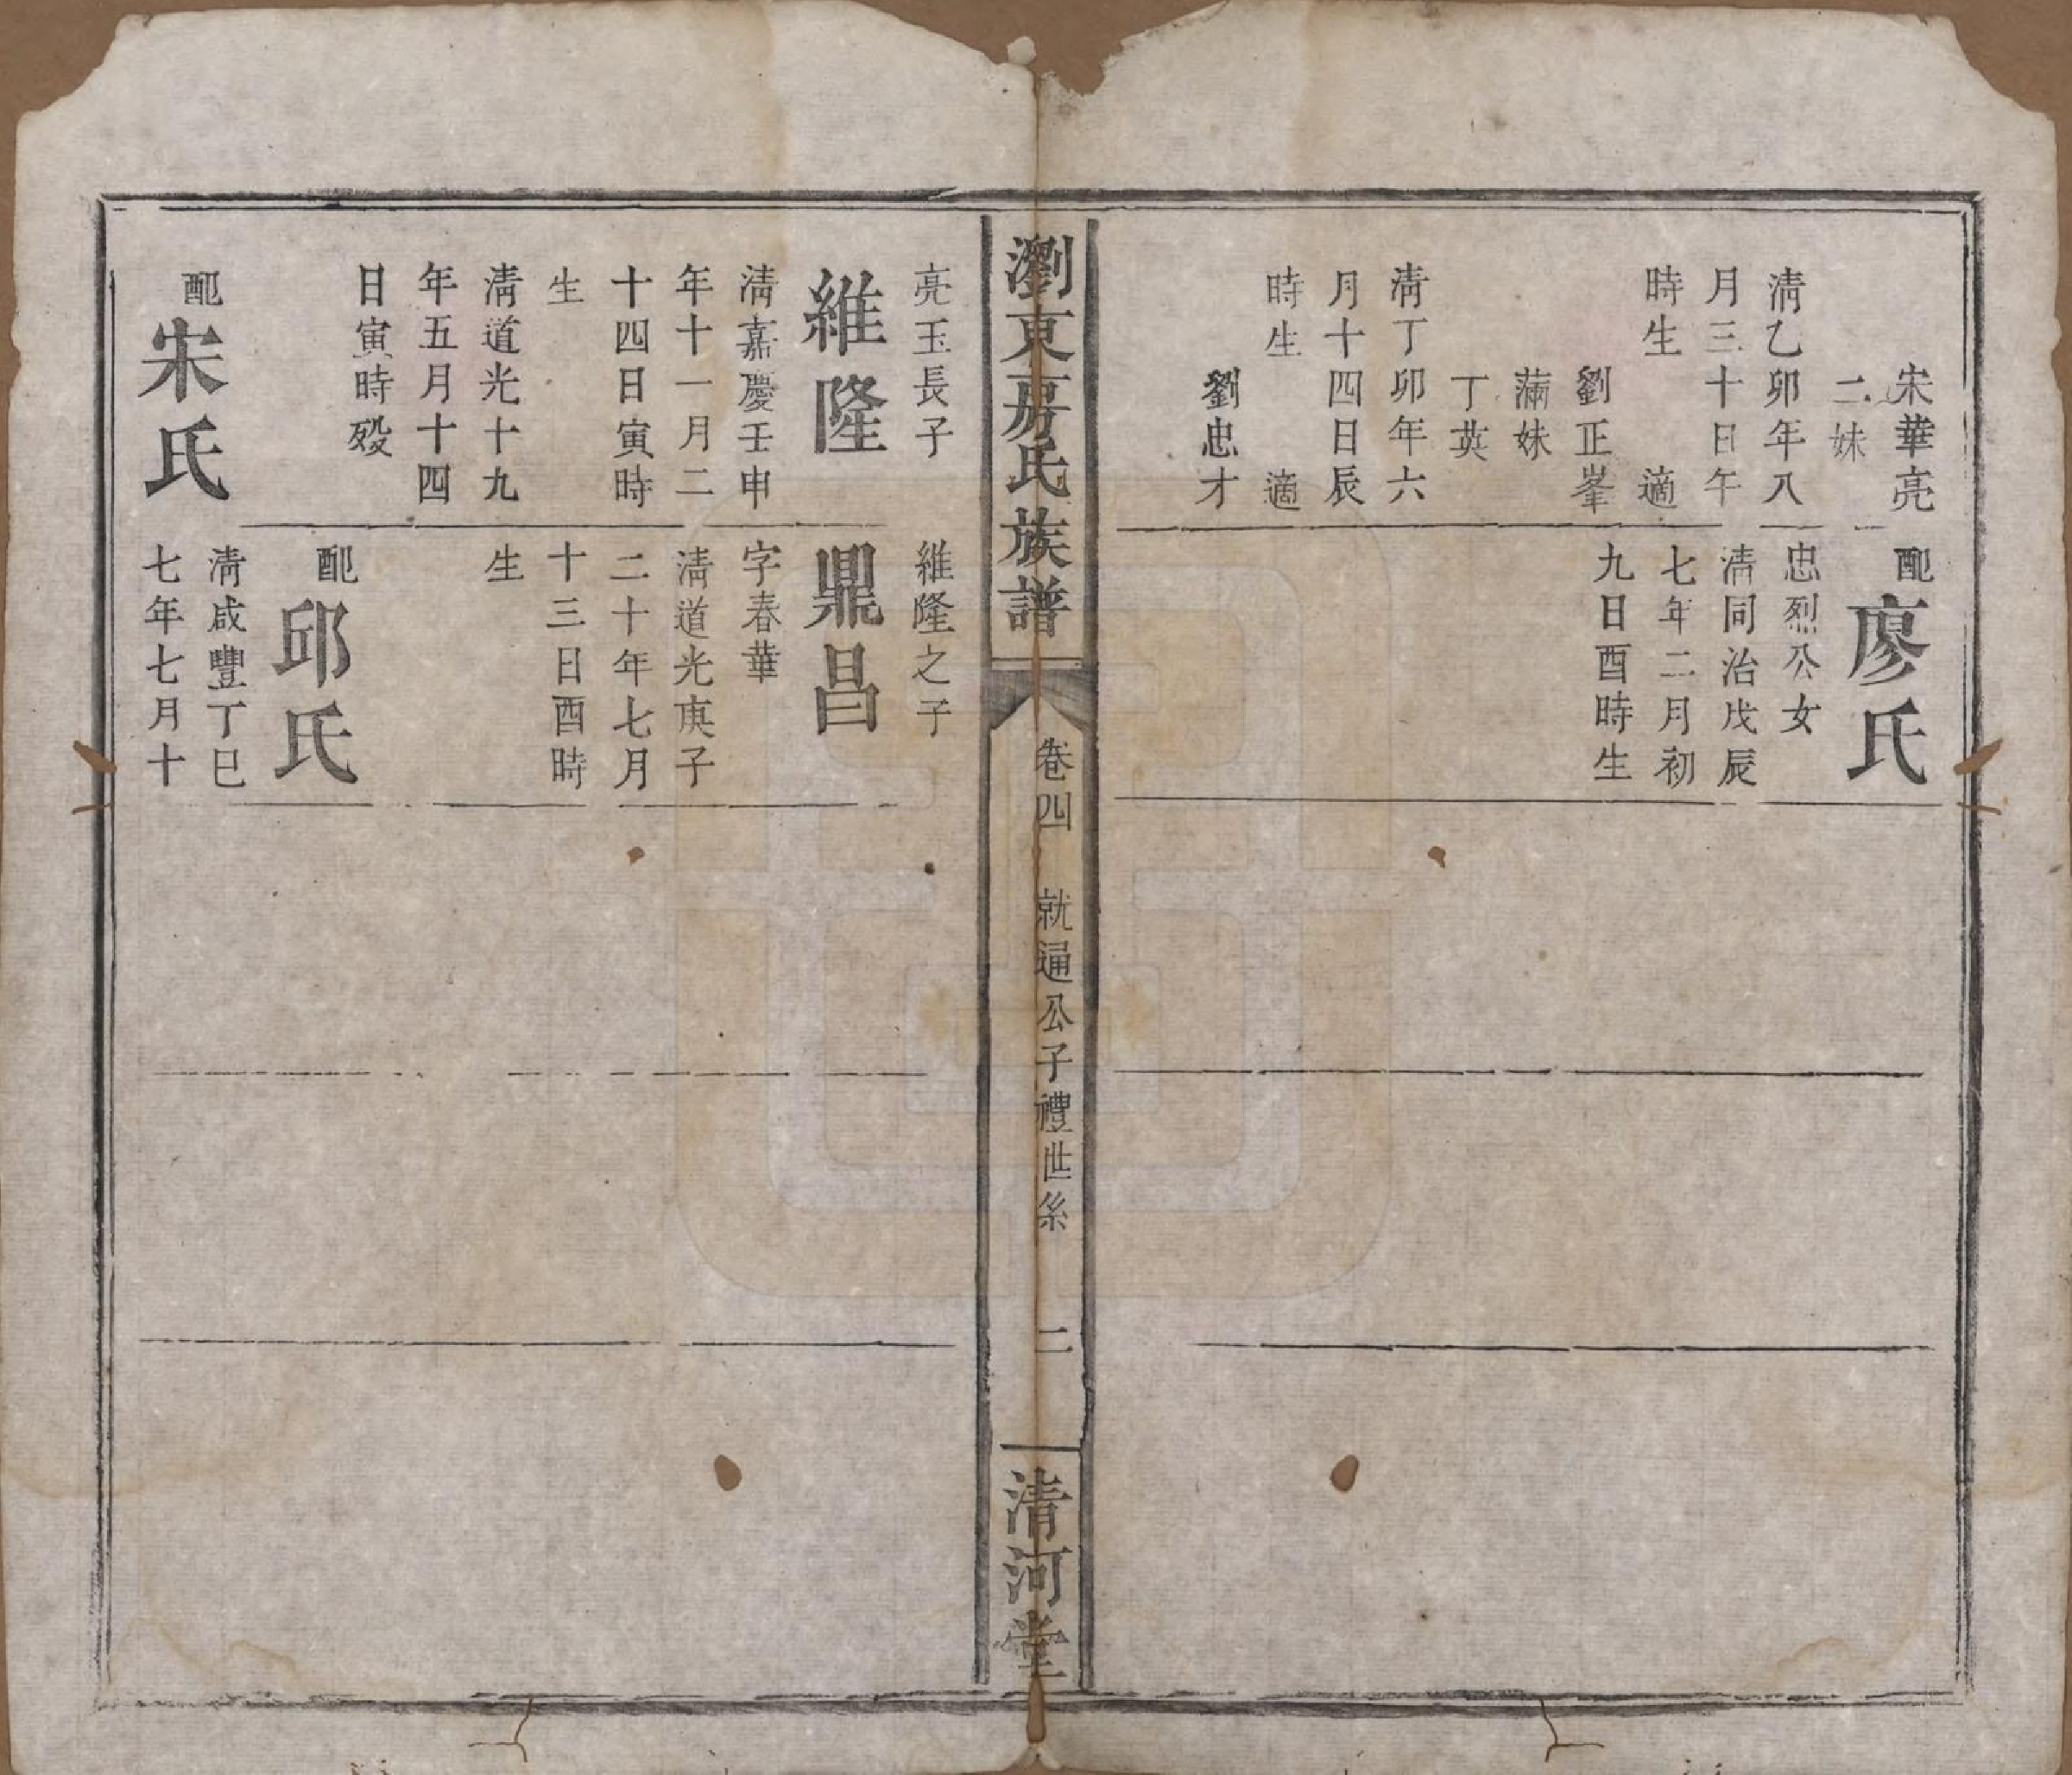 宋華亮
二妹
淸乙卯年八
月三十日午
時生　適
劉正峯
滿妹
丁英
淸丁卯年六
月十四日辰
時生　適
劉忠才
配廖氏
忠烈公女
淸同治戊辰
七年二月初
九日酉時生
瀏東房氏族譜
卷四　就通公子禮世系　二
清河堂
亮玉長子
維隆
淸嘉慶壬申
年十一月二
十四日寅時
生
淸道光十九
年五月十四
日寅時歿
配宋氏
維隆之子
鼎昌
字春華
淸道光庚子
二十年七月
十三日酉時
生
配邱氏
淸咸豐丁巳
七年七月十